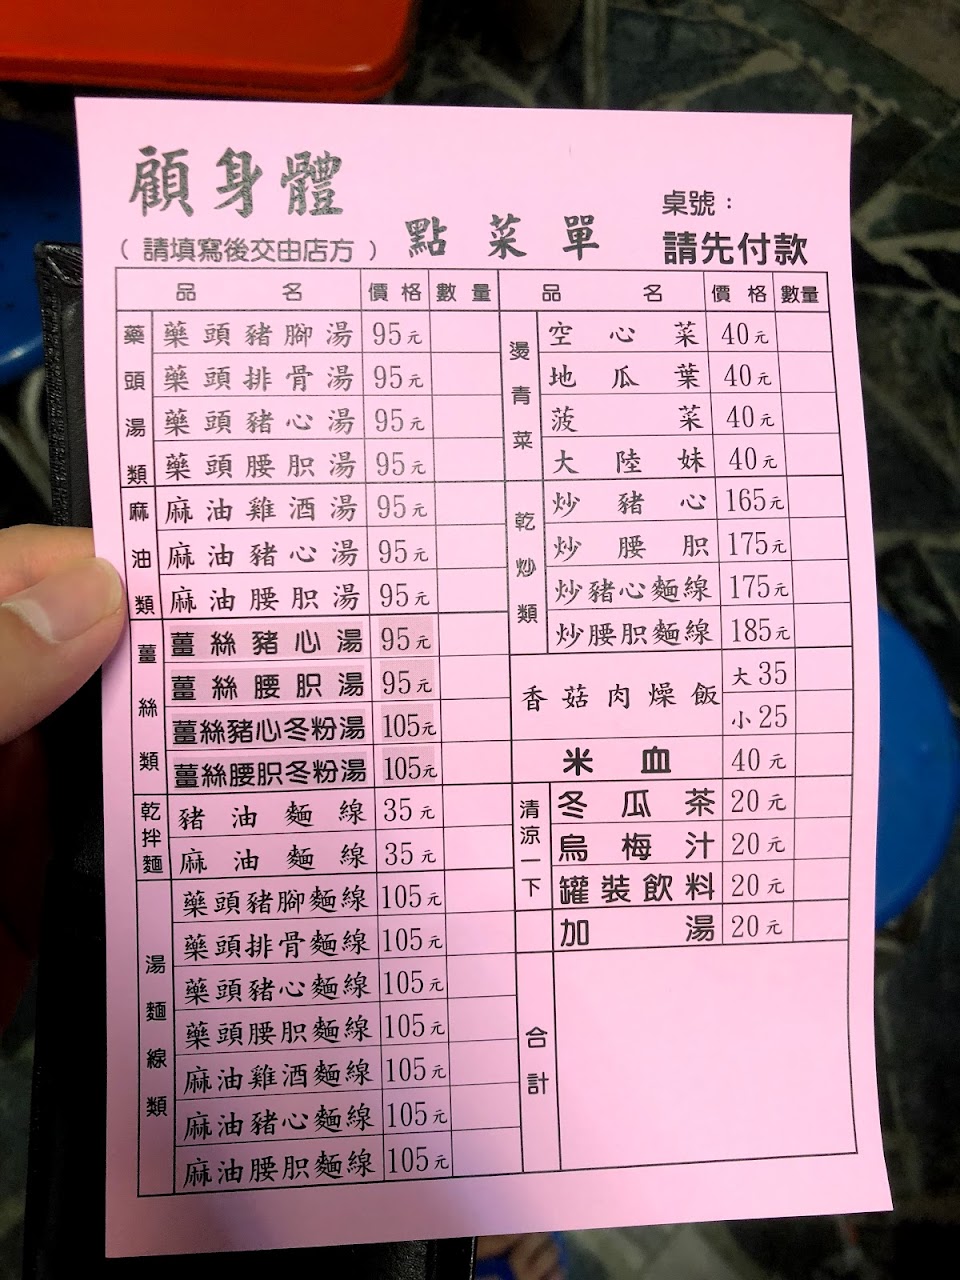 顧身體
點菜單
桌號：
（請填寫後交由店方）
請先付款
品名 價格 數量
藥頭湯類
藥頭豬腳湯 95元
藥頭排骨湯 95元
藥頭豬心湯 95元
藥頭腰胑湯 95元
麻油類
麻油雞酒湯 95元
麻油豬心湯 95元
麻油腰胑湯 95元
薑絲類
薑絲豬心湯 95元
薑絲腰胑湯 95元
薑絲豬心冬粉湯 105元
薑絲腰胑冬粉湯 105元
乾拌麵
豬油麵線 35元
麻油麵線 35元
湯麵線類
藥頭豬腳麵線 105元
藥頭排骨麵線 105元
藥頭豬心麵線 105元
藥頭腰胑麵線 105元
麻油雞酒麵線 105元
麻油豬心麵線 105元
麻油腰胑麵線 105元
品名 價格 數量
燙青菜
空心菜 40元
地瓜葉 40元
菠菜 40元
大陸妹 40元
乾炒類
炒豬心 165元
炒腰胑 175元
炒豬心麵線 175元
炒腰胑麵線 185元
香菇肉燥飯 大35
小25
米血 40元
清涼一下
冬瓜茶 20元
烏梅汁 20元
罐裝飲料 20元
加湯 20元
合計